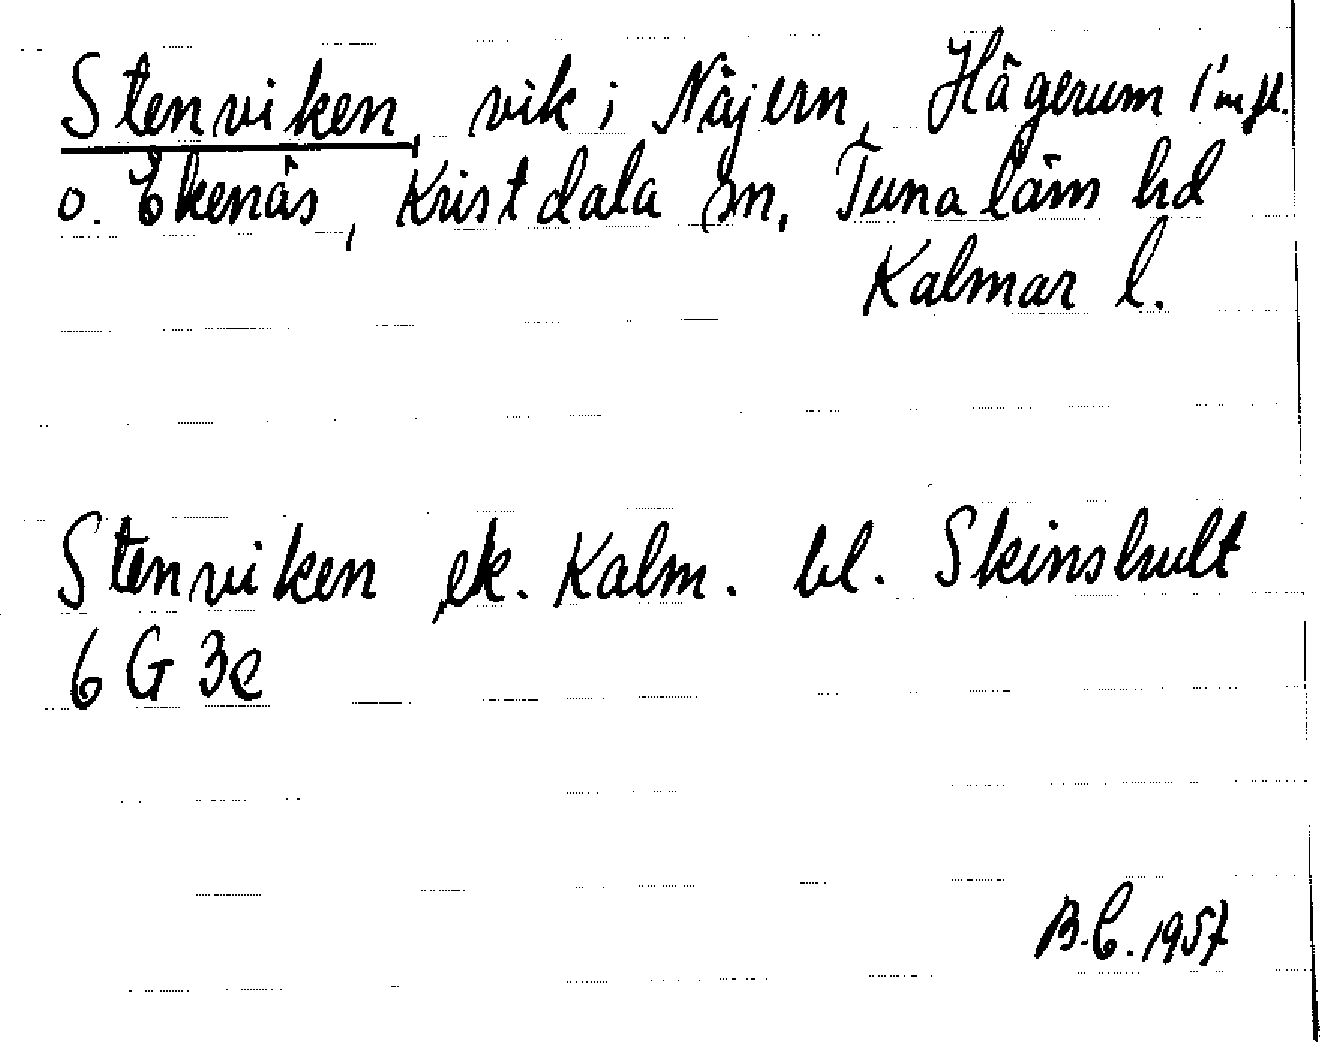 Stenviken, vik i Näjern, Hägerum 1 m fl.
o. Ekenäs, Kristdala sn, Tuna läns hd
Kalmar l.
Stenviken ek. Kalm. bl. Skinshult
6 G 3e
B.C. 1957